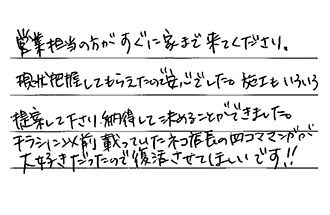 営業担当の方がすぐに家まで来てくださり、
現状把握してもらえたので安心でした。施工もいろいろ
提案して下さり、納得して決めることができました。
チラシに以前載っていたネコ店長の四コママンガが
大好きだったので復活させてほしいです!!